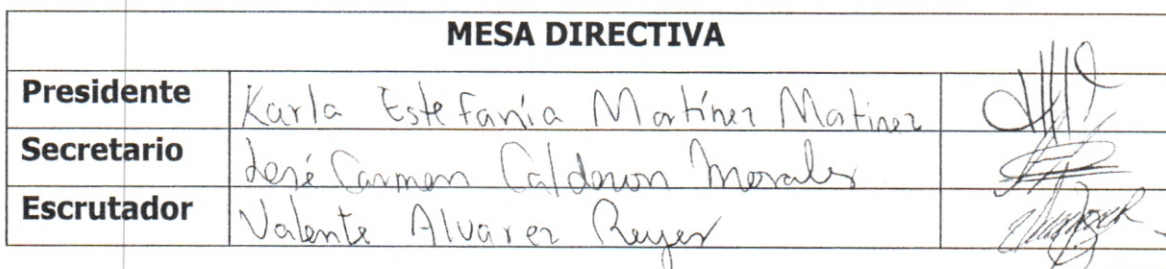 MESA DIRECTIVA
Presidente Karla Estefanía Martínez Matinez
Secretario José Carmen Calderon Morales
Escrutador Valente Alvarez Reyes